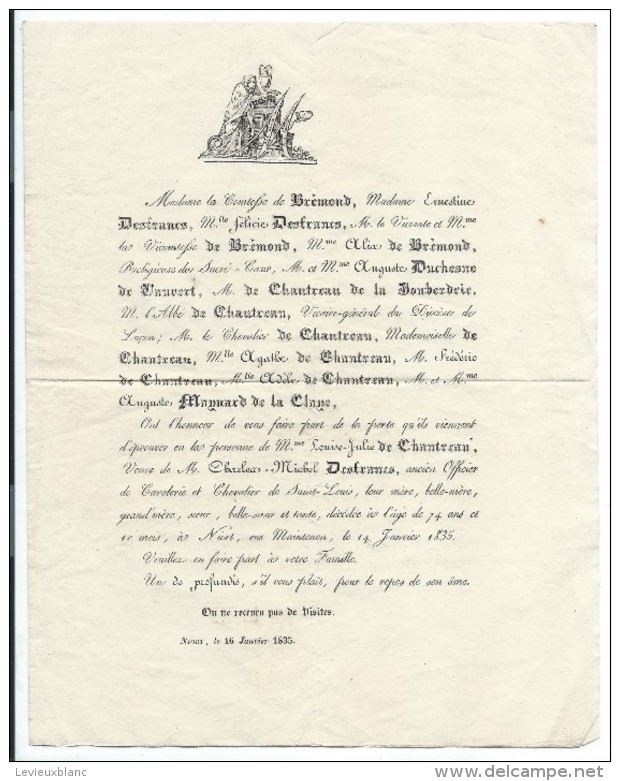 Madame la Comtesse de Brémond, Madame Ernestine
Desfrancs, M.lle félicie Desfrancs, M. le Vicomte et M.me
la Vicomtesse de Brémond, M.me Alix de Brémond,
Religieuse du Sacré-Cœur, M. et M.me Auguste Duchesne
de Vauvert, M. de Chantreau de la Jouberdrie,
M. l'Abbé de Chantreau, Vicaire-général du Diocèse de
Luçon; M. le Chevalier de Chantreau, Mademoiselle de
Chantreau, M.lle Agathe de Chantreau, M. Frédéric
de Chantreau, M.lle Adèle de Chantreau, M. et M.me
Auguste Maynard de la Claye,
Ont l'honneur de vous faire part de la perte qu'ils viennent
d'éprouver en la personne de M.me Louise-Julie de Chantreau,
Veuve de M. Charles-Michel Desfrancs, ancien Officier
de Cavalerie et Chevalier de Saint-Louis, leur mère, belle-mère,
grand'mère, sœur, belle-sœur et tante, décédée à l'âge de 74 ans et
10 mois, à Niort, rue Maintenon, le 14 Janvier 1835.
Veuillez en faire part à votre Famille.
Un de profundis, s'il vous plaît, pour le repos de son âme.
On ne recevra pas de Visites.
Niort, le 16 Janvier 1835.
Levieuxblanc
delcampe.net